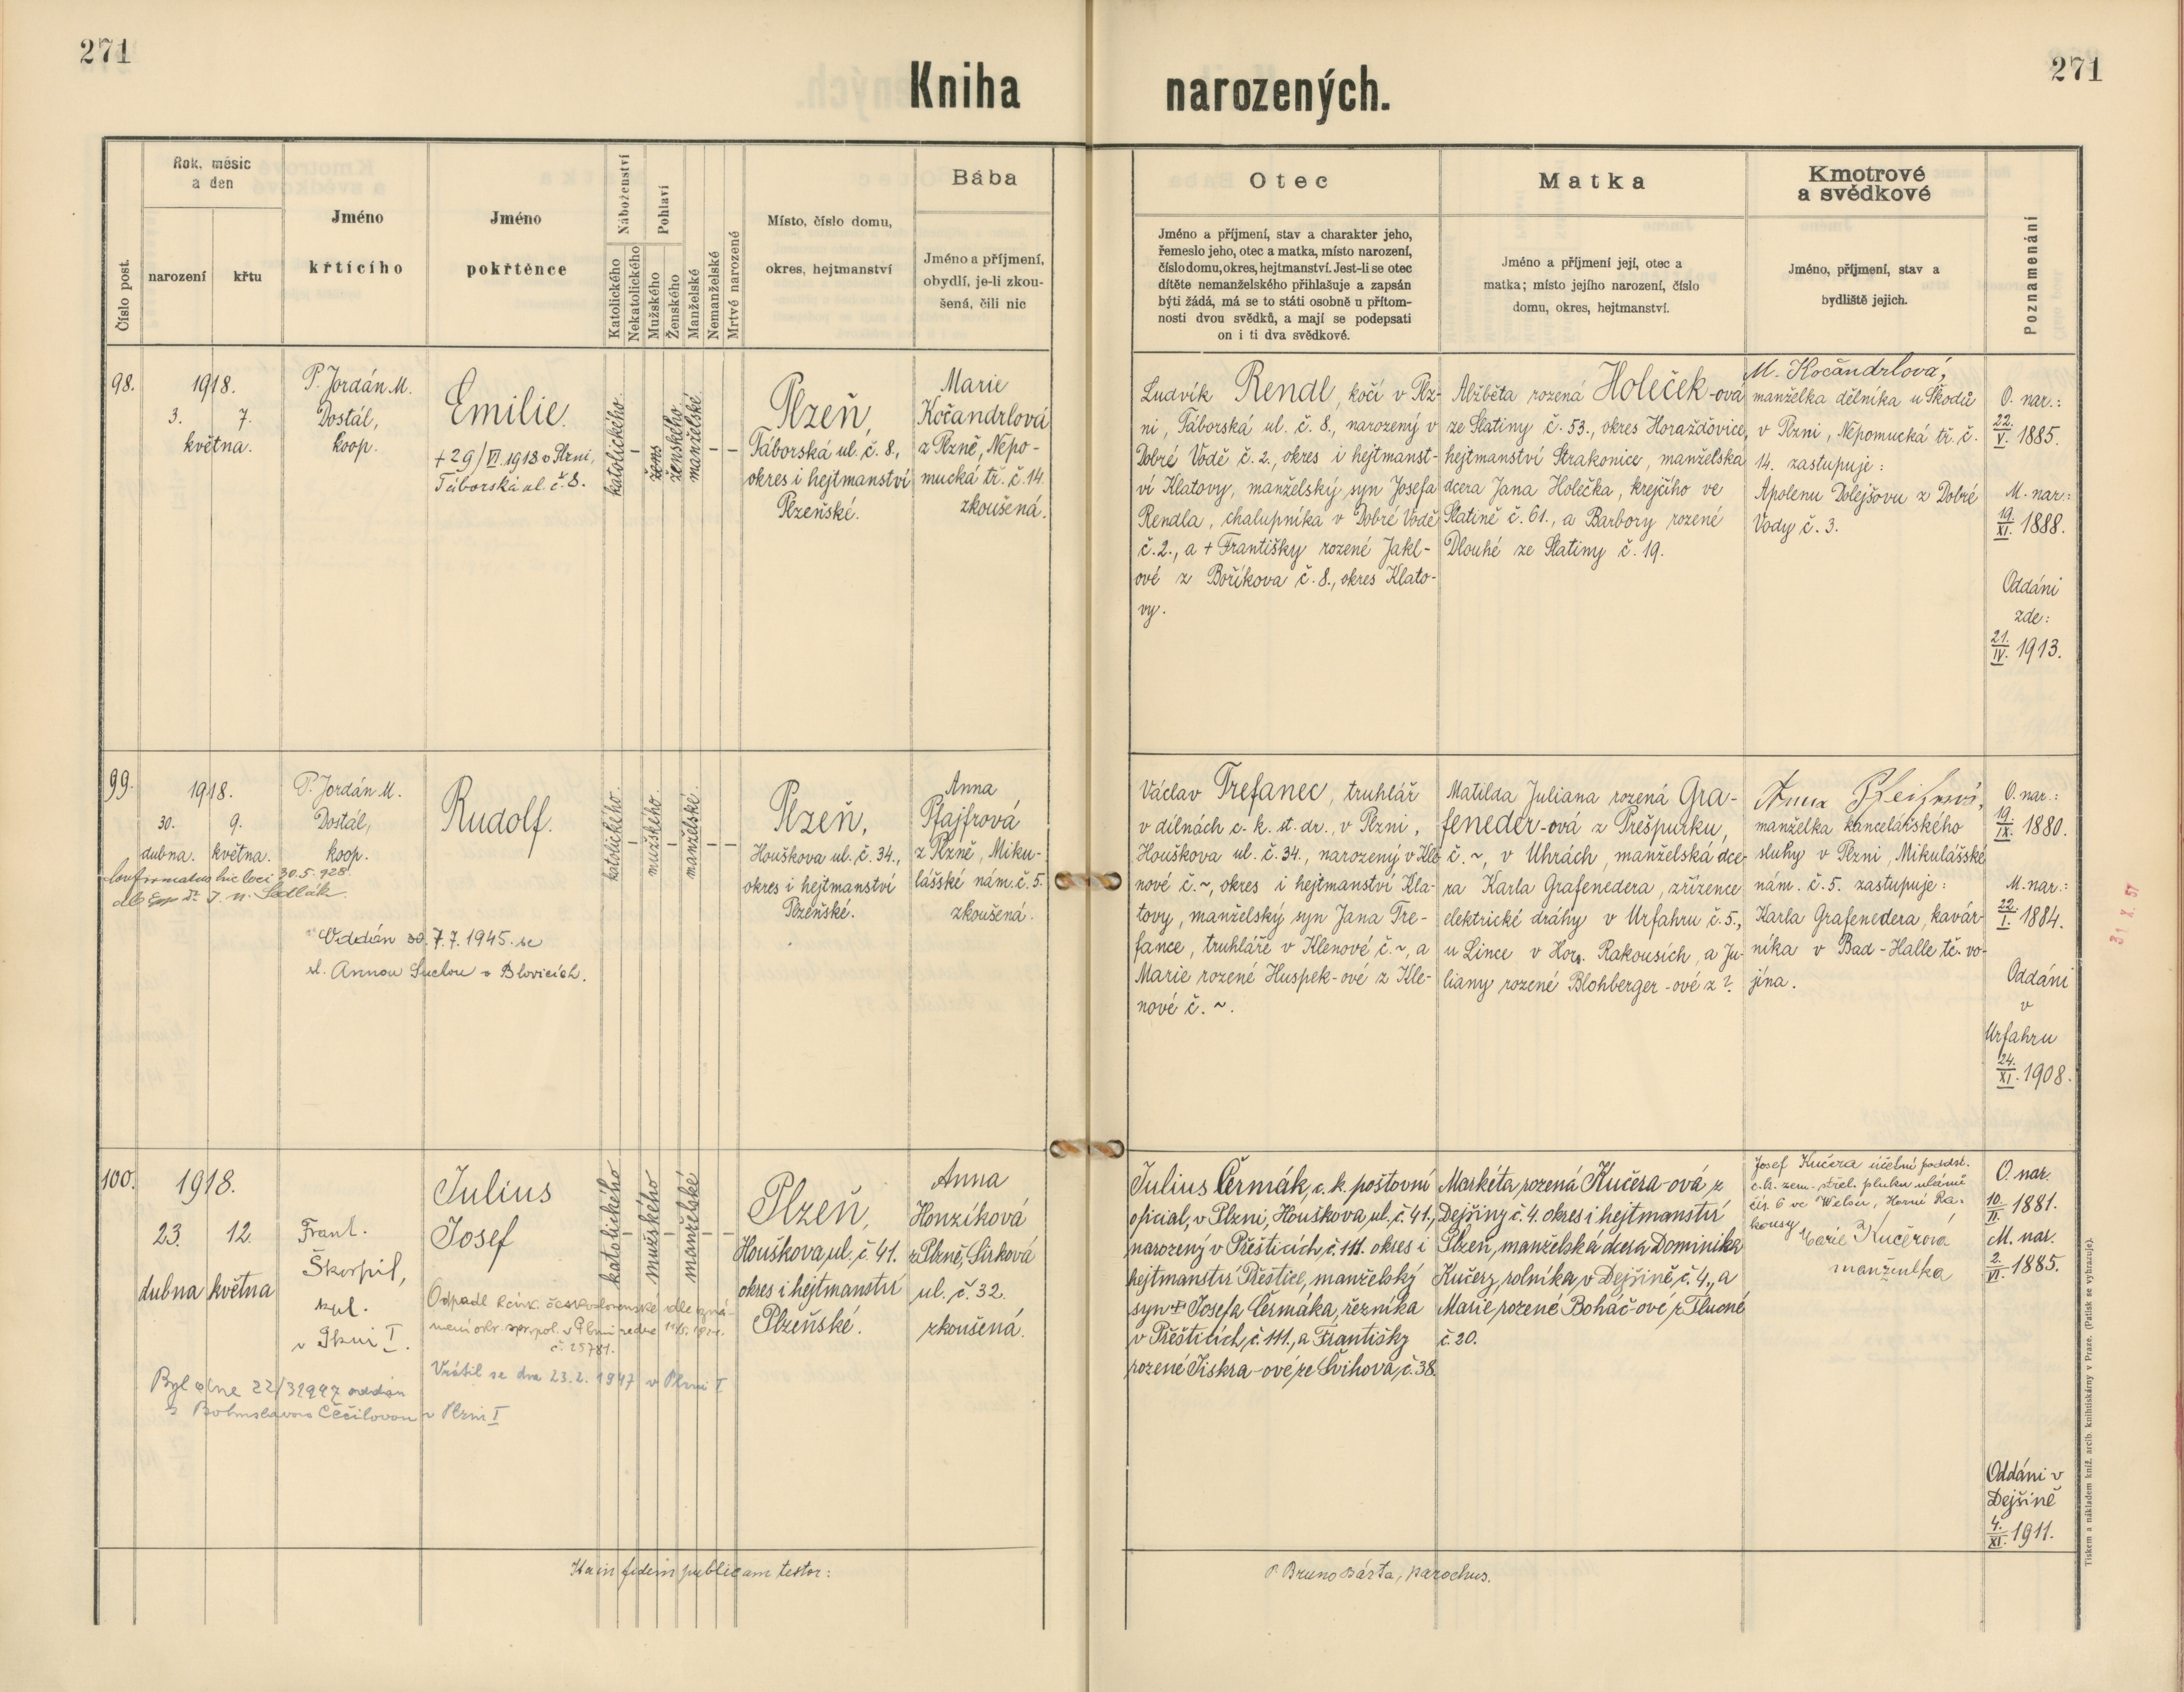 271
Kniha narozených.
271
Číslo post.
Rok, měsíc
a den
narození
křtu
Jméno
křtícího
Jméno
pokřtěnce
Náboženství
Katolického
Nekatolického
Pohlaví
Mužského
Ženského
Manželské
Nemanželské
Mrtvé narozené
Místo, číslo domu,
okres, hejtmanství
Bába
Jméno a příjmení,
obydlí, je-li zkou-
šená, čili nic
Otec
Jméno a příjmení, stav a charakter jeho,
řemeslo jeho, otec a matka, místo narození,
číslo domu, okres, hejtmanství. Jest-li se otec
dítěte nemanželského přihlašuje a zapsán
býti žádá, má se to státi osobně u přítom-
nosti dvou svědků, a mají se podepsati
on i ti dva svědkové.
Matka
Jméno a příjmení její, otec a
matka; místo jejího narození, číslo
domu, okres, hejtmanství.
Kmotrové
a svědkové
Jméno, příjmení, stav a
bydliště jejich.
Poznamenání
98.
1918.
3. 7.
května.
P. Jordán M.
Dostál,
koop.
Emilie.
+ 29/VI. 1918 v Plzni,
Táborská ul. č. 8.
katolického
–
ženského
manželské
– –
Plzeň,
Táborská ul. č. 8.,
okres i hejtmanství
Plzeňské.
Marie
Kočandrlová
z Plzně, Nepo-
mucká tř. č. 14.
zkoušená.
Ludvík Rendl, kočí v Plz-
ni, Táborská ul. č. 8., narozený v
Dobré Vodě č. 2., okres i hejtmanst-
ví Klatovy, manželský syn Josefa
Rendla, chalupníka v Dobré Vodě
č. 2., a + Františky rozené Jakl-
ové z Boříkova č. 8., okres Klato-
vy.
Alžběta rozená Holeček-ová
ze Slatiny č. 53., okres Horažďovice,
hejtmanství Strakonice, manželská
dcera Jana Holečka, krejčího ve
Slatině č. 61., a Barbory rozené
Dlouhé ze Slatiny č. 19.
M. Kočandrlová,
manželka dělníka u Škodů
v Plzni, Nepomucká tř. č.
14. zastupuje:
Apolenu Dolejšovu z Dobré
Vody č. 3.
O. nar.:
22./V. 1885.
M. nar.:
19./XI. 1888.
Oddáni
zde:
21./IV. 1913.
99.
1918.
30. 9.
dubna. května.
Confirmatus hic loci 30.5.928
P. Jordán M.
Dostál,
koop.
Oddán 7.7.1945 se
sl. Annou Suchou v Blovicích.
Rudolf.
katolického
–
mužského
–
manželské
– –
Plzeň,
Houškova ul. č. 34.,
okres i hejtmanství
Plzeňské.
Anna
Pfajfrová
z Plzně, Miku-
lášské nám. č. 5.
zkoušená.
Václav Trefanec, truhlář
v dílnách c. k. st. dr., v Plzni,
Houškova ul. č. 34., narozený v Kle-
nové č. ~, okres i hejtmanství Kla-
tovy, manželský syn Jana Tre-
fance, truhláře v Klenové č. ~, a
Marie rozené Huspek-ové z Kle-
nové č. ~.
Matilda Juliana rozená Gra-
feneder-ová z Prešpurku,
č. ~, v Uhrách, manželská dce-
ra Karla Grafenedera, zřízence
elektrické dráhy v Urfahru č. 5.,
u Lince v Hor. Rakousích, a Ju-
liany rozené Blohberger-ové z ?.
Anna
manželka kancelářského
sluhy v Plzni, Mikulášské
nám. č. 5. zastupuje:
Karla Grafenedera, kavár-
níka v Bad-Halle tč. vo-
jína.
O. nar.:
19./IX. 1880.
M. nar.:
22./I. 1884.
Oddáni
v
Urfahru
24./XI. 1908.
31 X. 57
100.
1918.
23. 12.
dubna května
Frant.
Škorpil,
kpl.
v Plzni I.
Julius
Josef
Odpadl
č. 25781.
Vrátil se dne 23.2.1947 v Plzni I.
Byl dne 22/3 1947 oddán
s Bohuslavou Cěčilovou v Plzni I
katolického
–
mužského
–
manželské
– –
Plzeň,
Houškova ul. č. 41.
okres i hejtmanství
Plzeňské.
Anna
Honzíková
z Plzně, Sirková
ul. č. 32.
zkoušená.
Julius Čermák, c. k. poštovní
oficial, v Plzni, Houškova ul. č. 41.,
narozený v Přešticích, č. 111. okres i
hejtmanství Přeštice, manželský
syn + Josefa Čermáka, řezníka
v Přešticích, č. 111., a Františky
rozené Jiskra-ové, ze Švihova, č. 38.
Markéta, rozená Kučera-ová, z
Dejšiny č. 4. okres i hejtmanství
Plzeň, manželská dcera Dominika
Kučery, rolníka, v Dejšině, č. 4., a
Marie, rozené Boháč-ové, z Tlucné
č. 20.
Josef Kučera účetní poddst.
c.k. zem. střel. pluku ulánů
čís. 6 ve Welsu, Horní Ra-
kousy
Marie Kučerová
manželka
O. nar.
10./II. 1881.
M. nar.
2./VI. 1885.
Oddáni v
Dejšině
4./XI. 1911.
Ita in fidem publicam testor:
P. Bruno Bárta, parochus.
Tiskem a nákladem kníž. arcib. knihtiskárny v Praze. (Patisk se vyhrazuje).